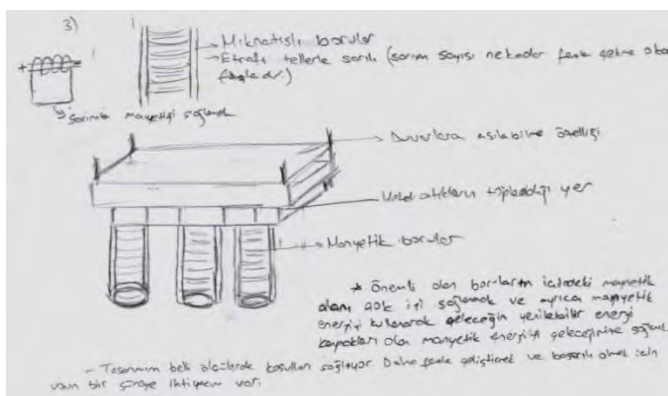 3)
Mıknatıslı borular
Etrafı tellerle sarılı (sarım sayısı ne kadar fazla çekme o kadar
fazladır.)
+ -
Sarımla manyetiği sağlamak
Duvarlara asılabilme özelliği
atıkların toplandığı yer
Manyetik borular
* Önemli olan boruların içindeki manyetik
alanı çok iyi sağlamak ve ayrıca manyetik
enerjiyi kullanarak geleceğin yenilebilir enerji
kaynakları olan manyetik enerjiyi
- Tasarımım belli ölçülerde koşulları sağlıyor Daha fazla geliştirmek ve başarılı olmak için
uzun bir süreye ihtiyacım var.